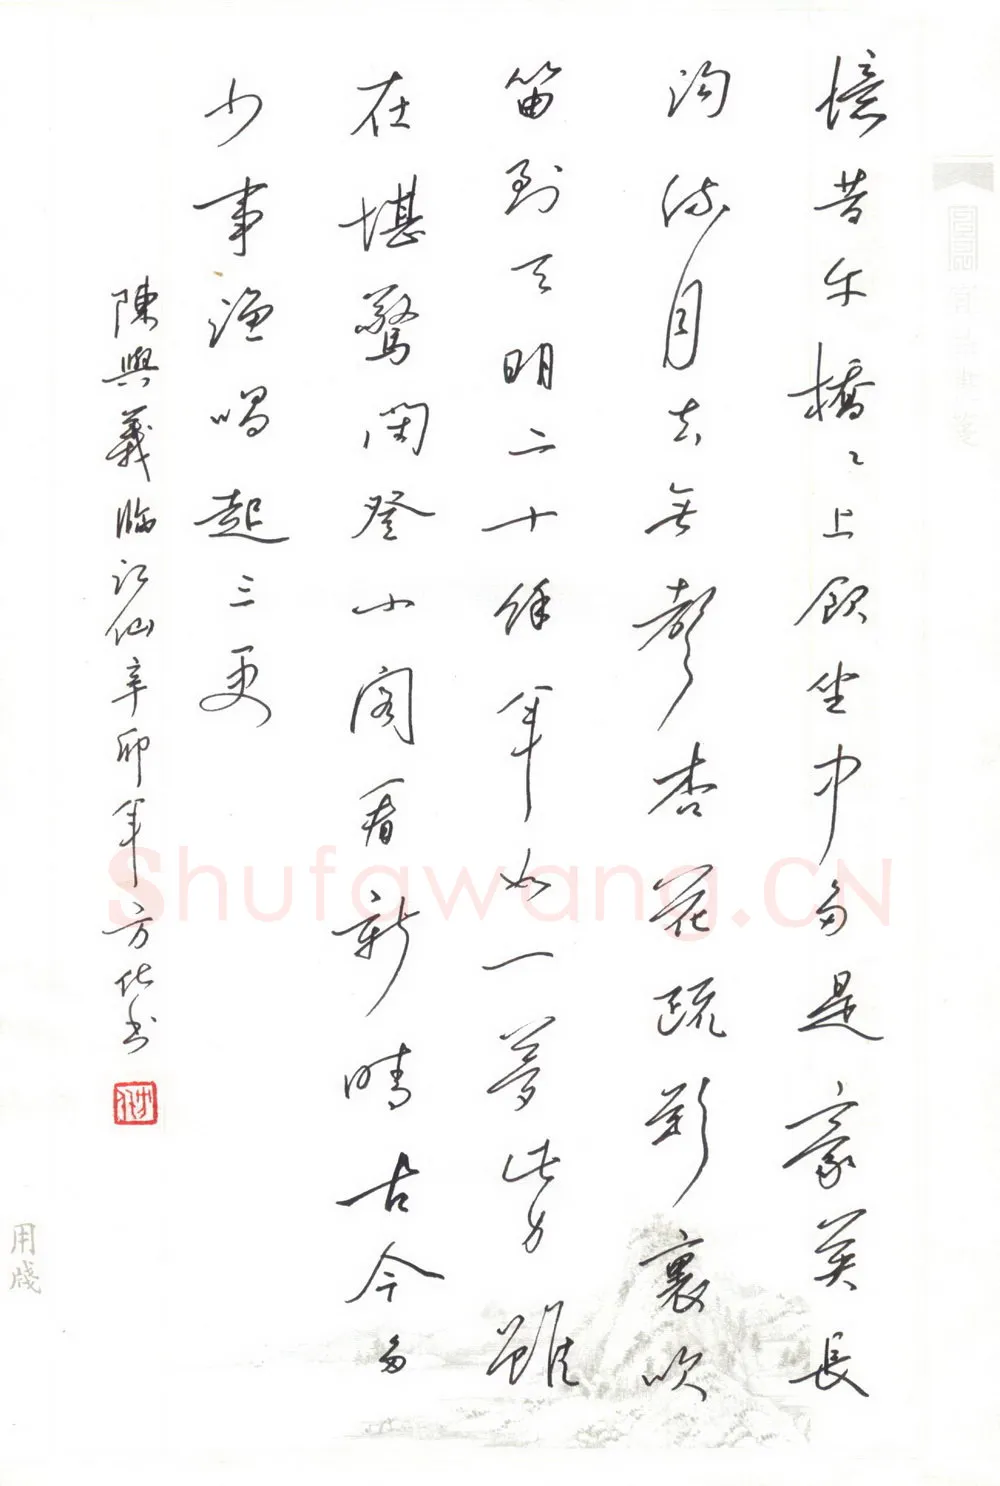 憶昔午橋〻上飲坐中多是豪英長
沟流月去無聲杏花疏影裏吹
笛到天明二十餘年如一夢此身雖
在堪驚閑登小閣看新晴古今多
少事漁唱起三更
陳與義臨江仙辛卯年方化书
用箋
Shufawang.CN